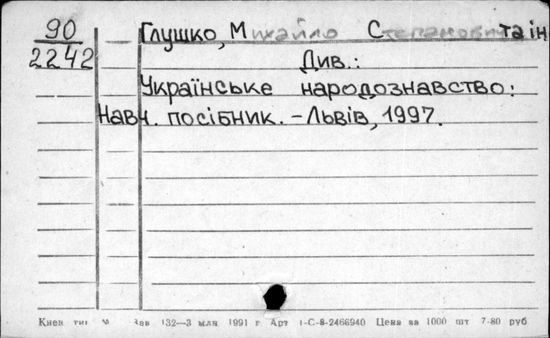 90
2242
Глушко, Михайло Степанович та ін
Див.:
Українське народознавство:
Навч. посібник. – Львів, 1997.
Киев тип Зав 132—3 млн 1991 г Арт 1-С-8-2466940 Цена за 1000 шт 7-80 руб